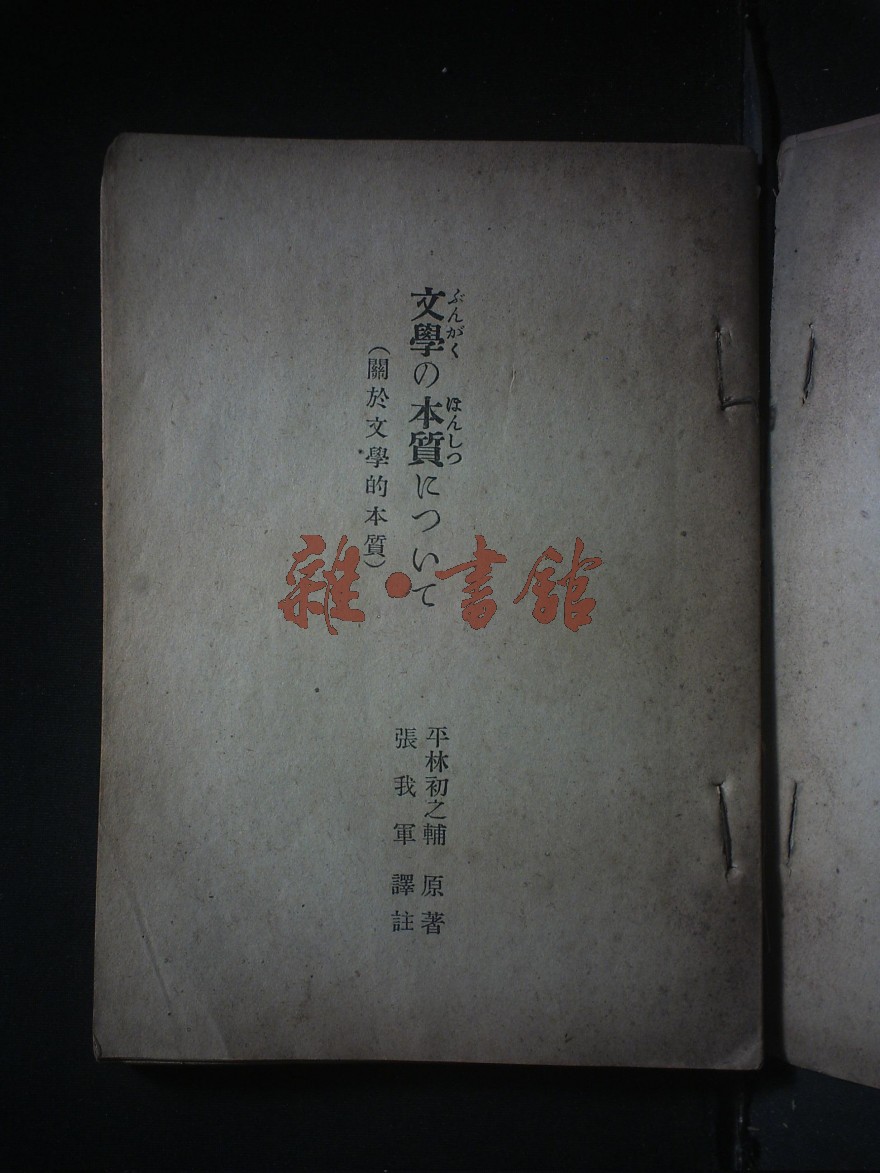 文學の本質について
ぶんがく ほんしつ
(關於文學的本質)
平林初之輔 原著
張我軍 譯註
雜·書館